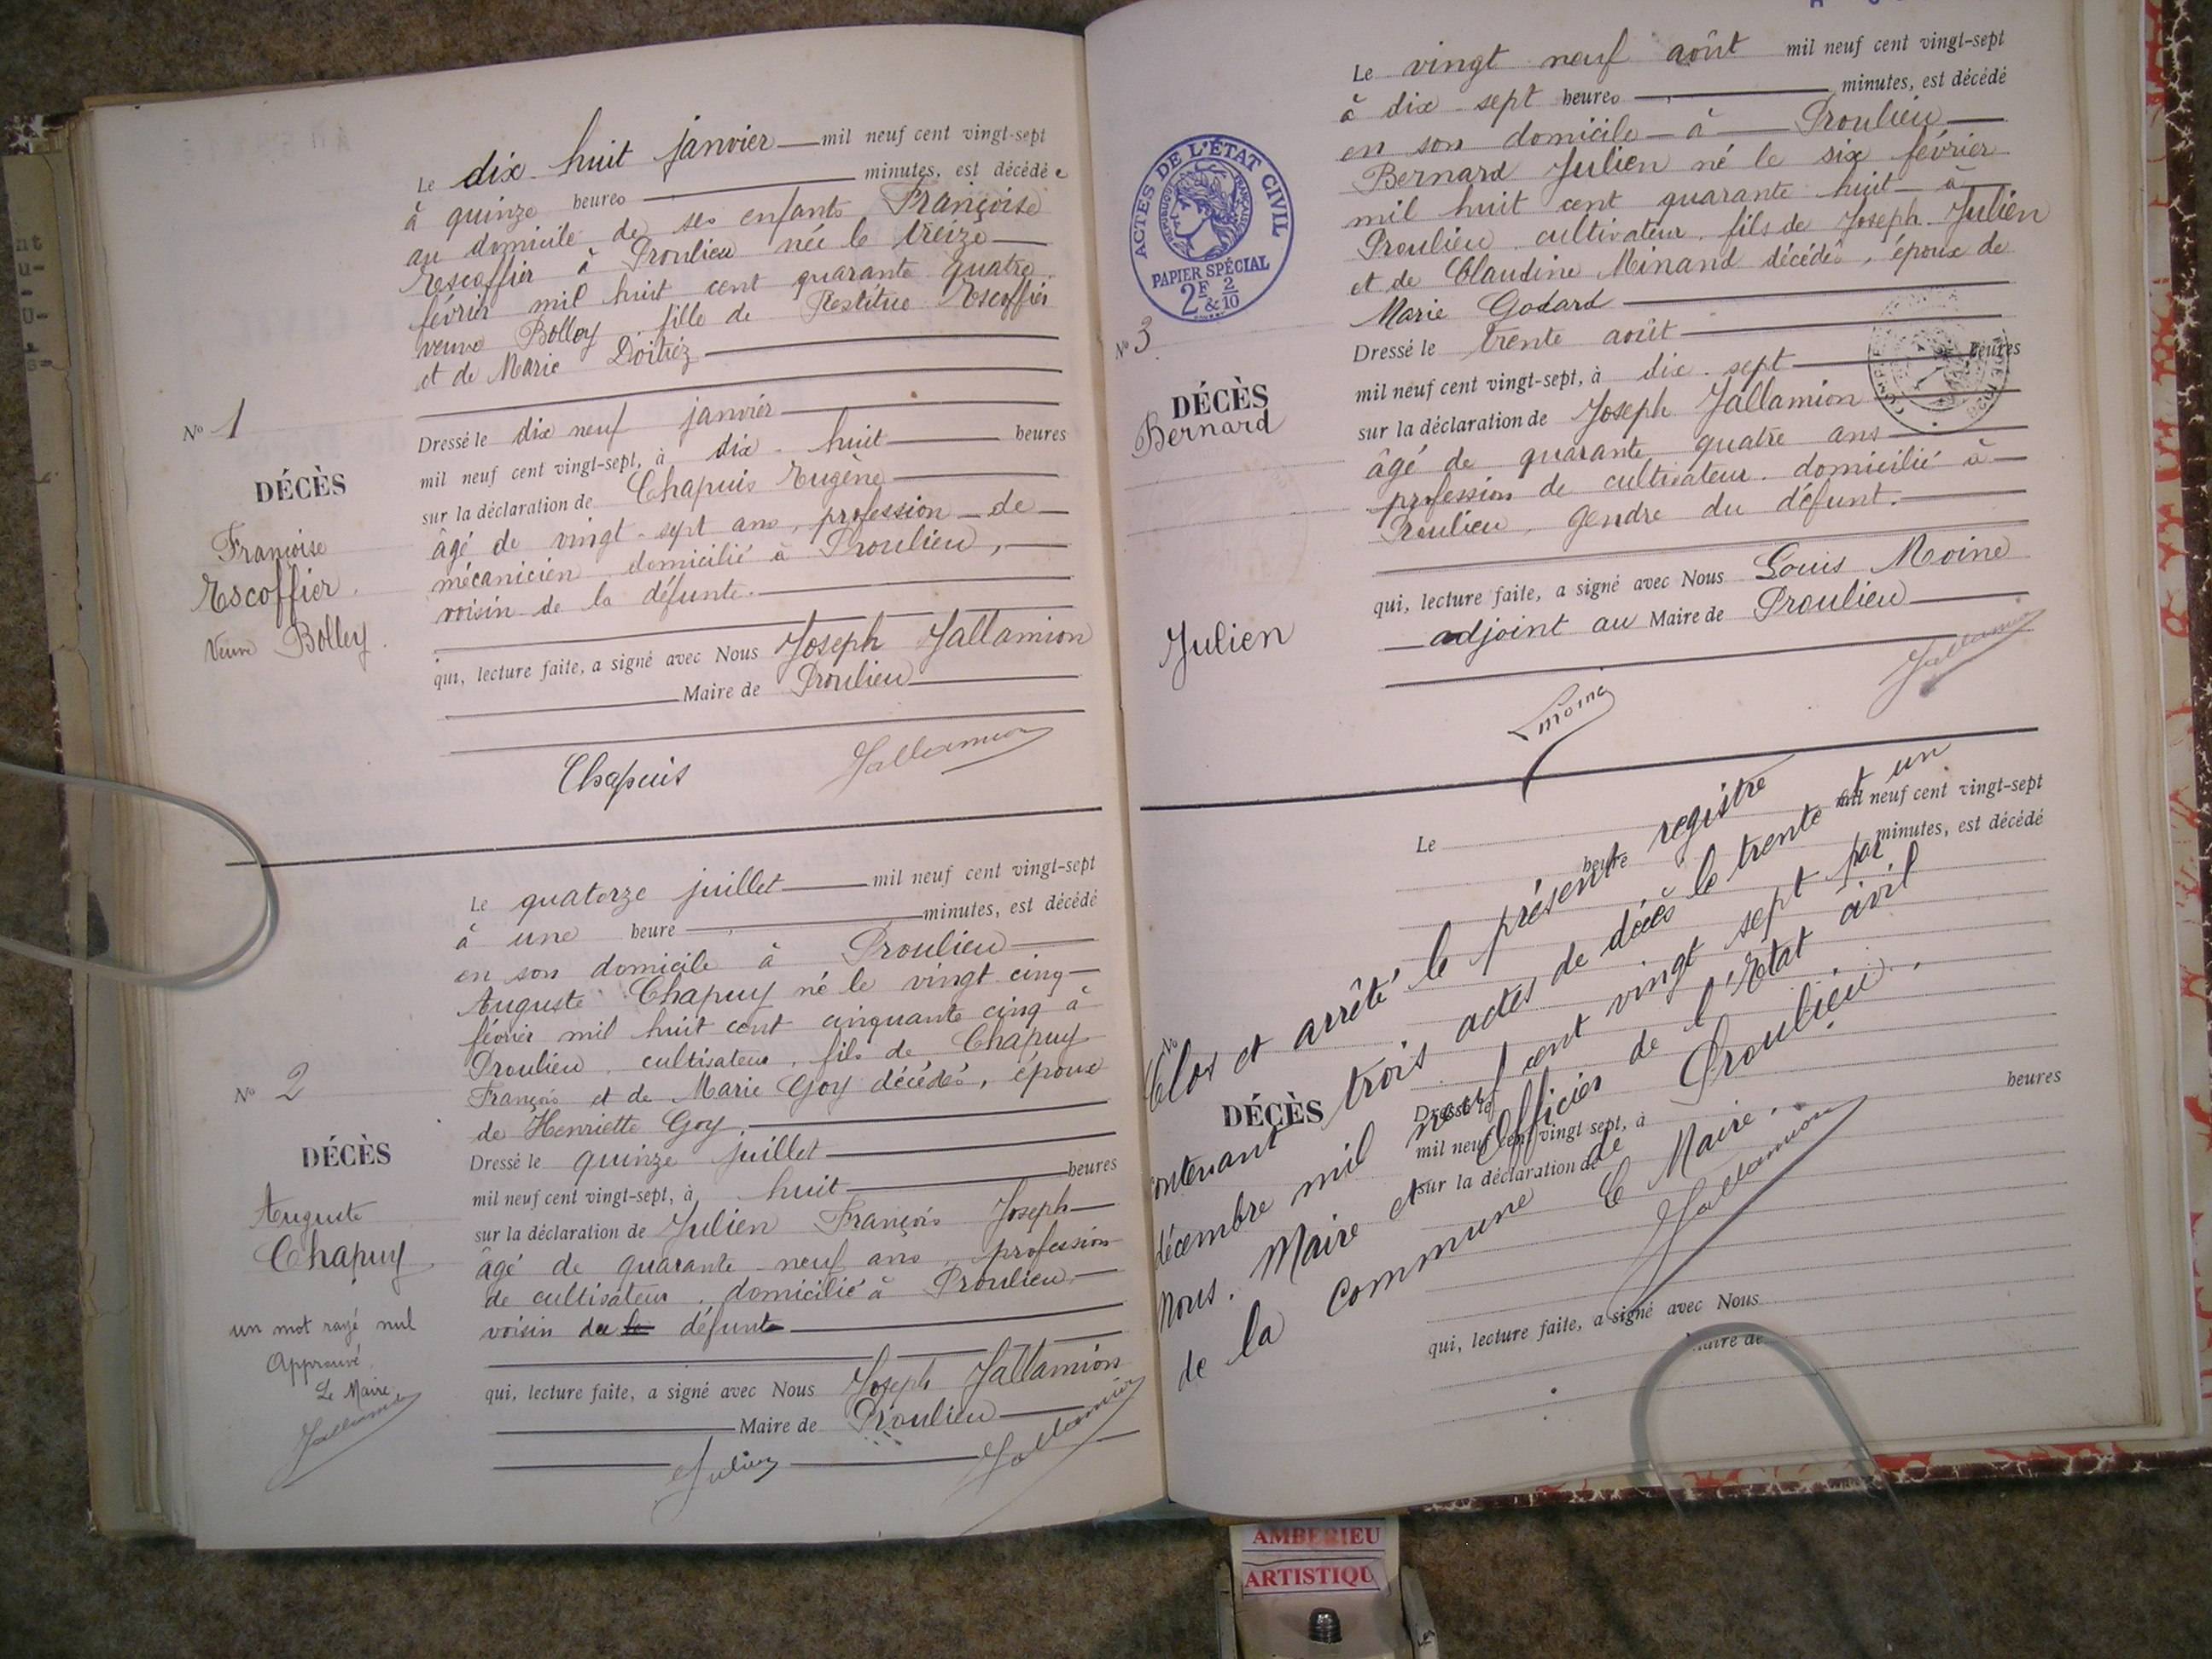 Le dix-huit janvier mil neuf cent vingt-sept
à quinze heures minutes, est décédée
au domicile de ses enfants Françoise
Escoffier à Proulieu née le treize
février mil huit cent quarante quatre
veuve Bolley fille de Restitue Escoffier
et de Marie
Dressé le dix neuf janvier
mil neuf cent vingt-sept, à dix-huit heures
sur la déclaration de Chapuis Eugène
âgé de vingt-sept ans, profession de
mécanicien domicilié à Proulieu,
voisin de la défunte.
qui, lecture faite, a signé avec Nous Joseph Jallamion
Maire de Proulieu
Chapuis Jallamion
No 1
DÉCÈS
Françoise
Escoffier
Veuve Bolley
Le quatorze juillet mil neuf cent vingt-sept
à une heure minutes, est décédé
en son domicile à Proulieu
Auguste Chapuy né le vingt cinq
février mil huit cent cinquante cinq à
Proulieu, cultivateur, fils de Chapuy
François et de Marie Goy décédés, époux
de Henriette Goy.
Dressé le quinze juillet
mil neuf cent vingt-sept, à huit heures
sur la déclaration de Julien François Joseph
âgé de quarante-neuf ans, profession
de cultivateur, domicilié à Proulieu
voisin du le défunt
qui, lecture faite, a signé avec Nous Joseph Jallamion
Maire de Proulieu
Julien Jallamion
No 2
DÉCÈS
Auguste
Chapuy
un mot rayé nul
Approuvé
Le Maire
Jallamion
Le vingt neuf août mil neuf cent vingt-sept
à dix-sept heures minutes, est décédé
en son domicile à Proulieu
Bernard Julien né le six février
mil huit cent quarante huit à
Proulieu cultivateur, fils de Joseph Julien
et de Claudine Minand décédés, époux de
Marie Godard
Dressé le trente août
mil neuf cent vingt-sept, à dix-sept heures
sur la déclaration de Joseph Jallamion
âgé de quarante quatre ans
profession de cultivateur domicilié à
Proulieu, gendre du défunt.
qui, lecture faite, a signé avec Nous Louis Moine
adjoint au Maire de Proulieu
L moine Jallamion
ACTES DE L'ÉTAT CIVIL
RÉPUBLIQUE FRANÇAISE
PAPIER SPÉCIAL
2F & 2/10
No 3
DÉCÈS
Bernard
Julien
Le mil neuf cent vingt-sept
heure minutes, est décédé
No
DÉCÈS
Dressé le
mil neuf cent vingt-sept, à heures
sur la déclaration de
qui, lecture faite, a signé avec Nous
Maire de
Clos et arrêté le présent registre
contenant trois actes de décès le trente et un
décembre mil neuf cent vingt sept par
Nous. Maire et Officier de l'Etat civil
de la commune de Proulieu.
Le Maire.
Jallamion
AMBERIEU
ARTISTIQU